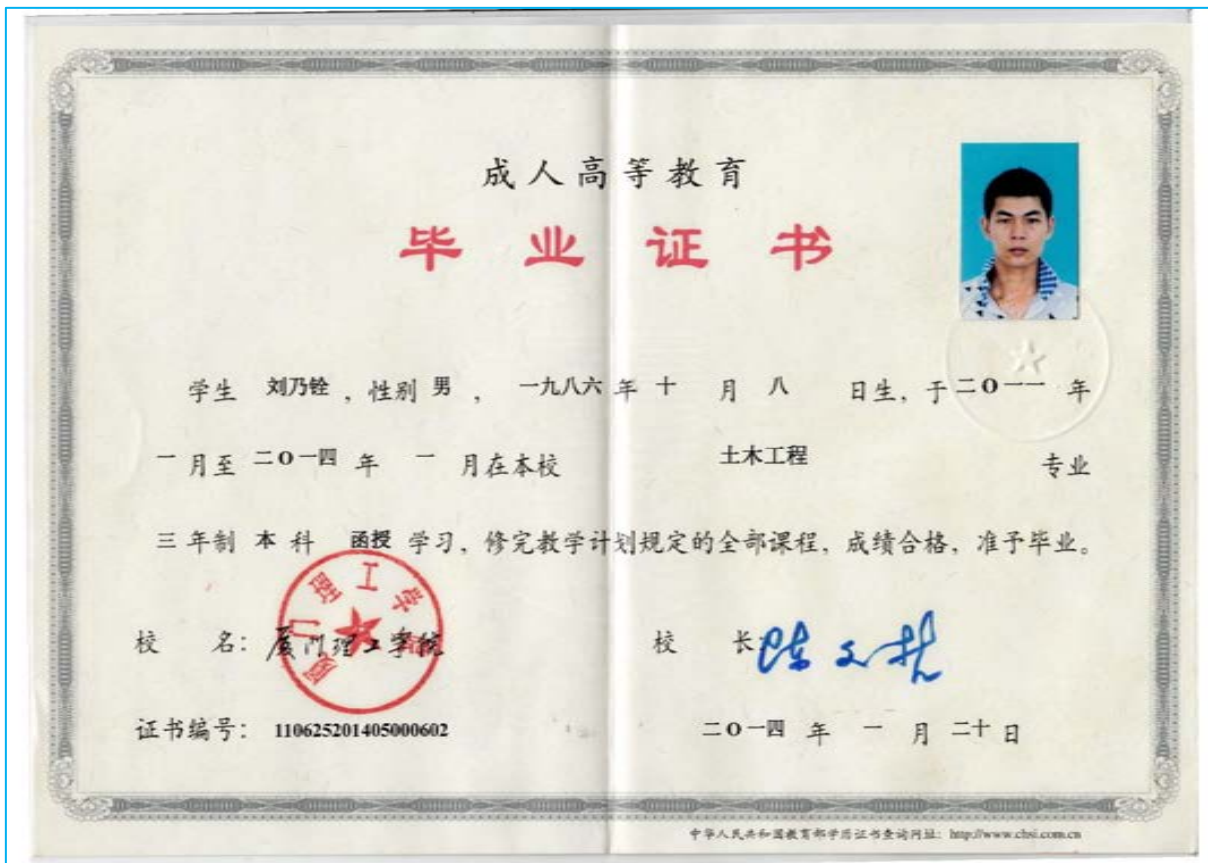 成人高等教育
毕业证书
学生 刘乃铨 ，性别 男 ， 一九八六 年 十 月 八 日生，于 二〇一一 年
一 月至 二〇一四 年 一 月在本校 土木工程 专业
三 年制 本 科 函授 学习，修完教学计划规定的全部课程，成绩合格，准予毕业。
厦门理工学院
校 名：厦门理工学院 校 长：
证书编号： 110625201405000602 二〇一四 年 一 月 二十 日
中华人民共和国教育部学历证书查询网址：http://www.chsi.com.cn